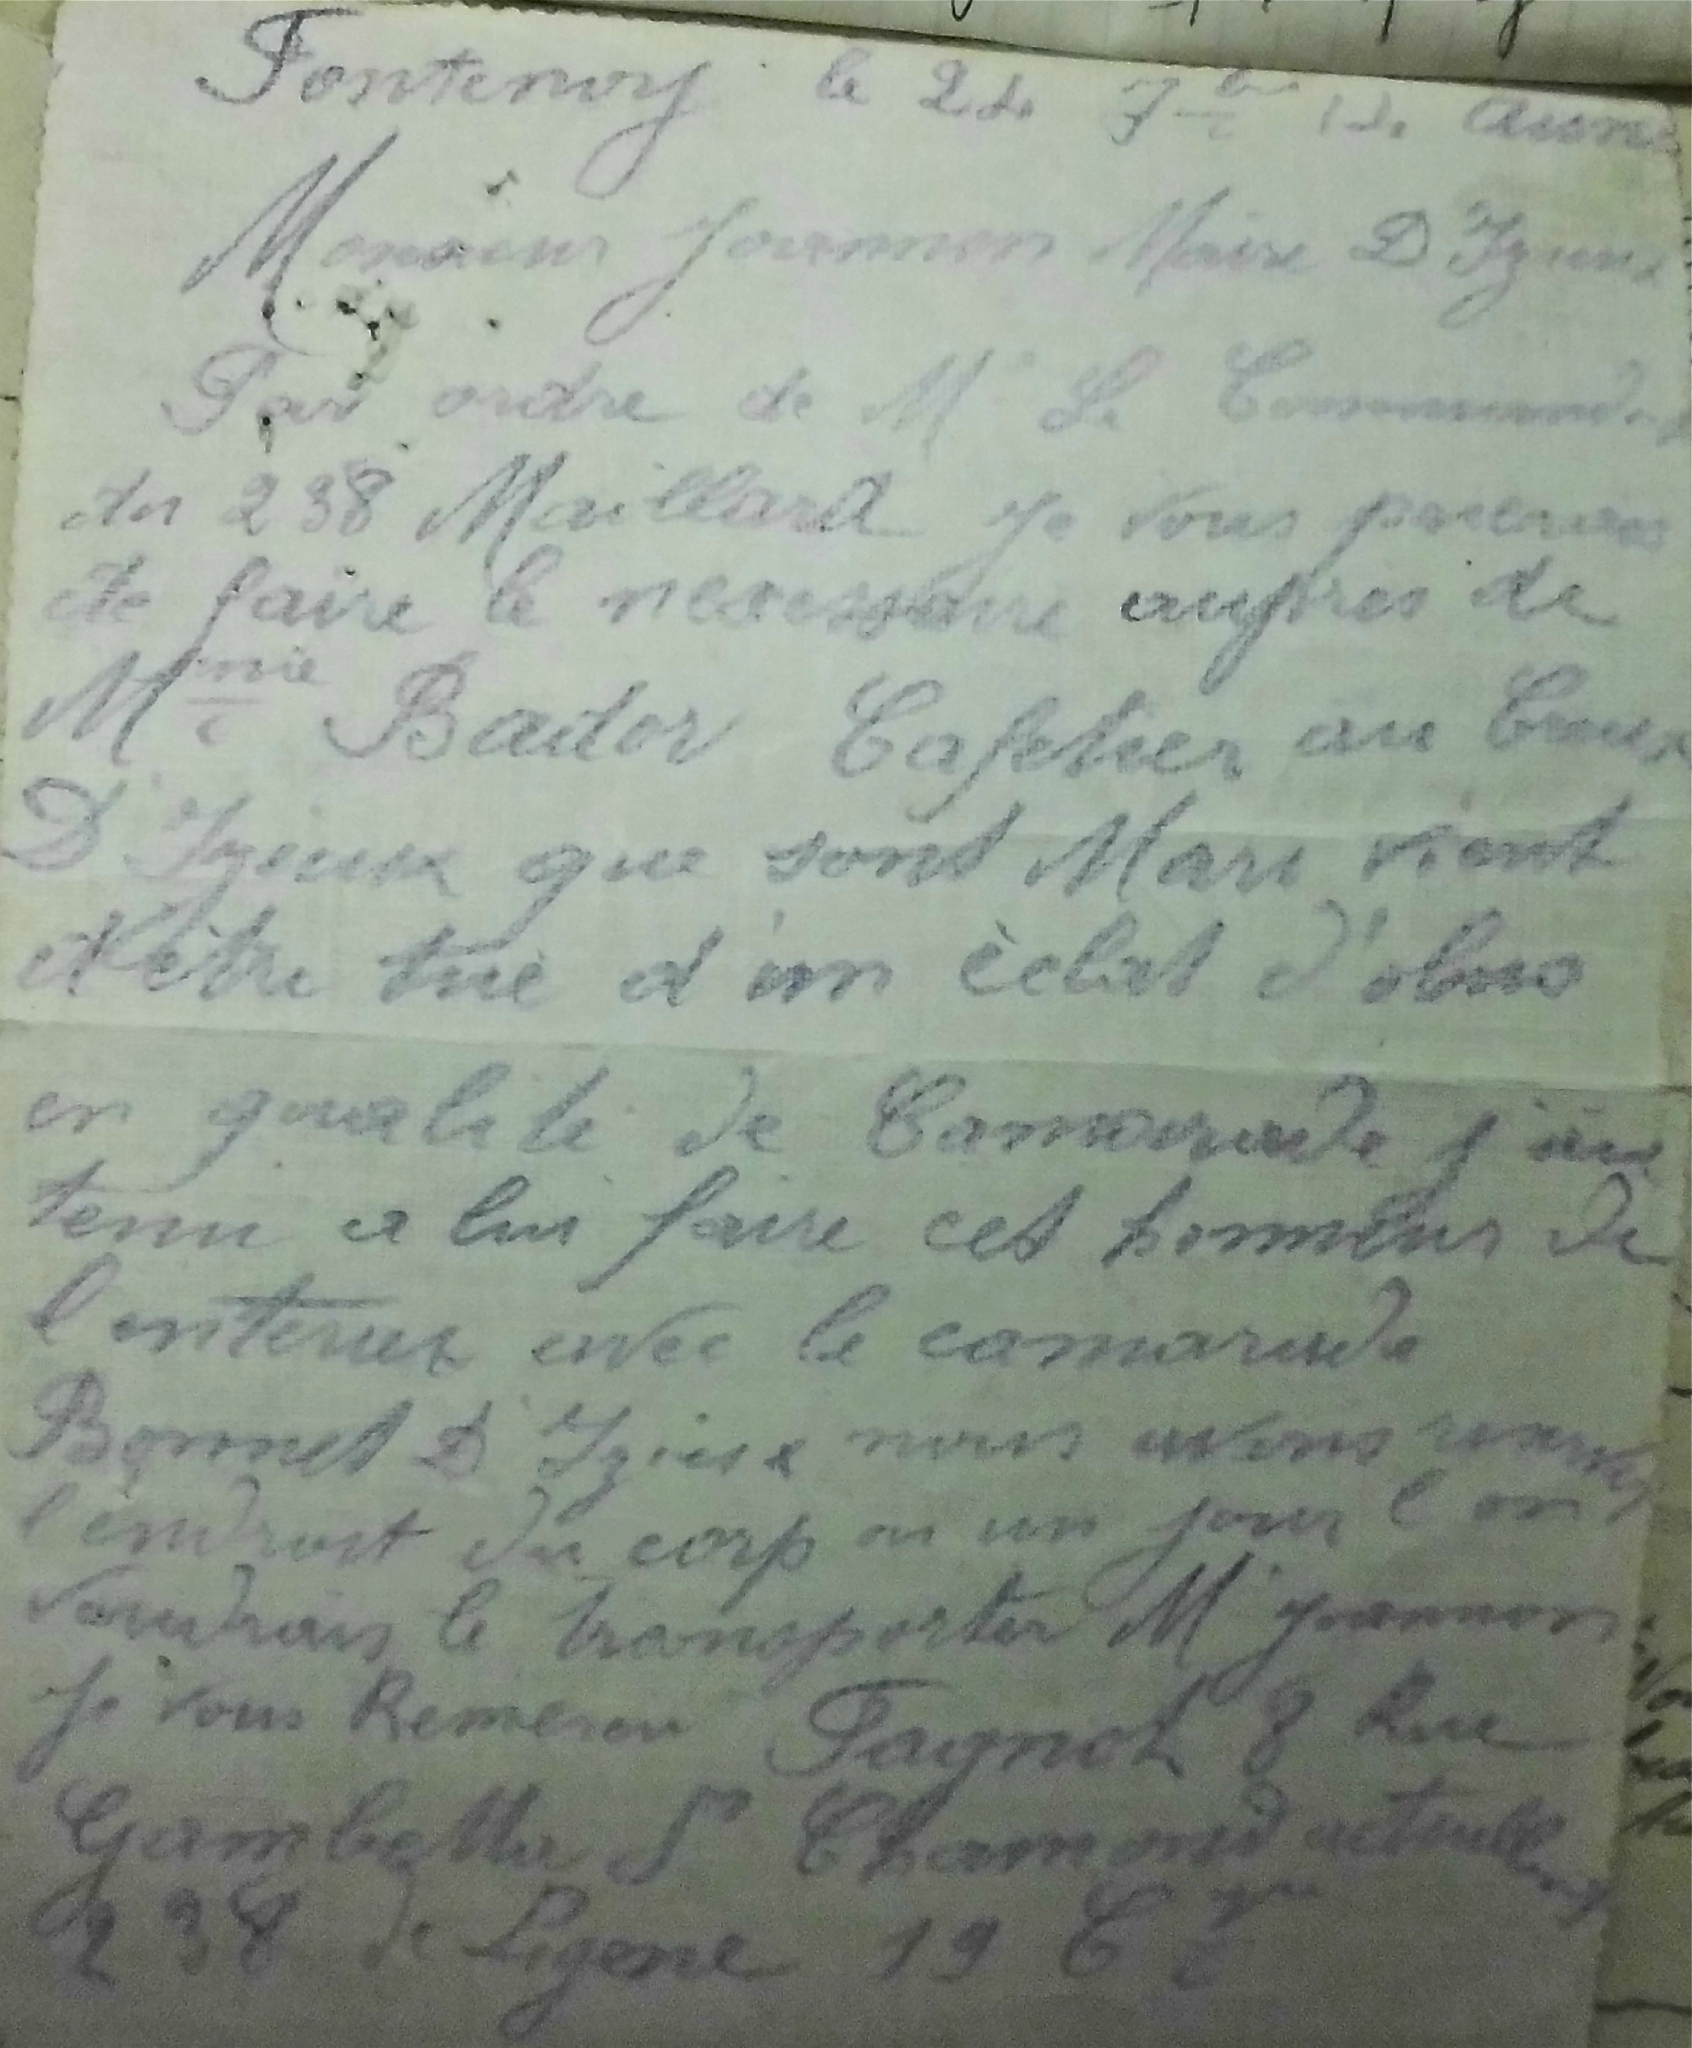 Fontenoy le 22 7bre 14 Aisne
Monsieur Joannon Maire D'Izieux
Par ordre de Mr Le Commandant
du 238 Maillard je vous
de faire le necessaire aupres de
Mme Bador Cafetier au Creux
D'Izieux que sont Mari vient
d'être tué d'un èclat d'obus
en qualité de Camarade j'ai
tenu a lui faire cet honneur de
l'enterrer avec le camarade
Bonnet D'Izieux nous avons
l'endroit du corp ou un jour l'on
voudrais le transporter Mr Joannon
je vous Remerciu Fagnot 8 Rue
Gambetta St Chamond actuellement
238 de Ligene 19 Cgnie